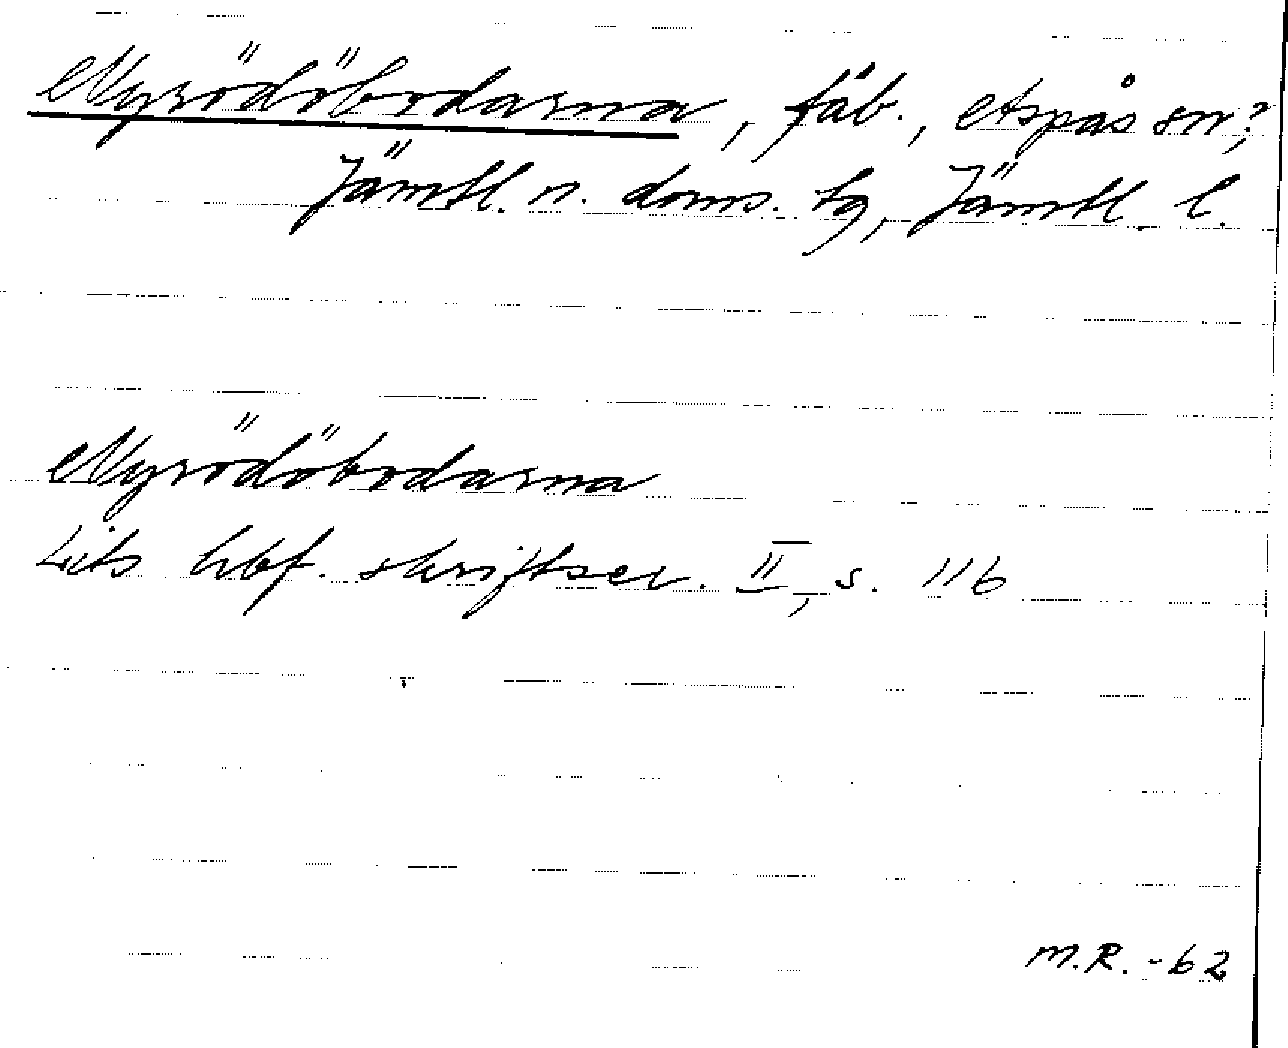 Nyrödöbodarna, fäb., Aspås sn?,
Jämtl. n. doms. tg, Jämtl. l.
Nyrödöbodarna
Lits hbf. skriftser. II, s. 116
M.R. -62